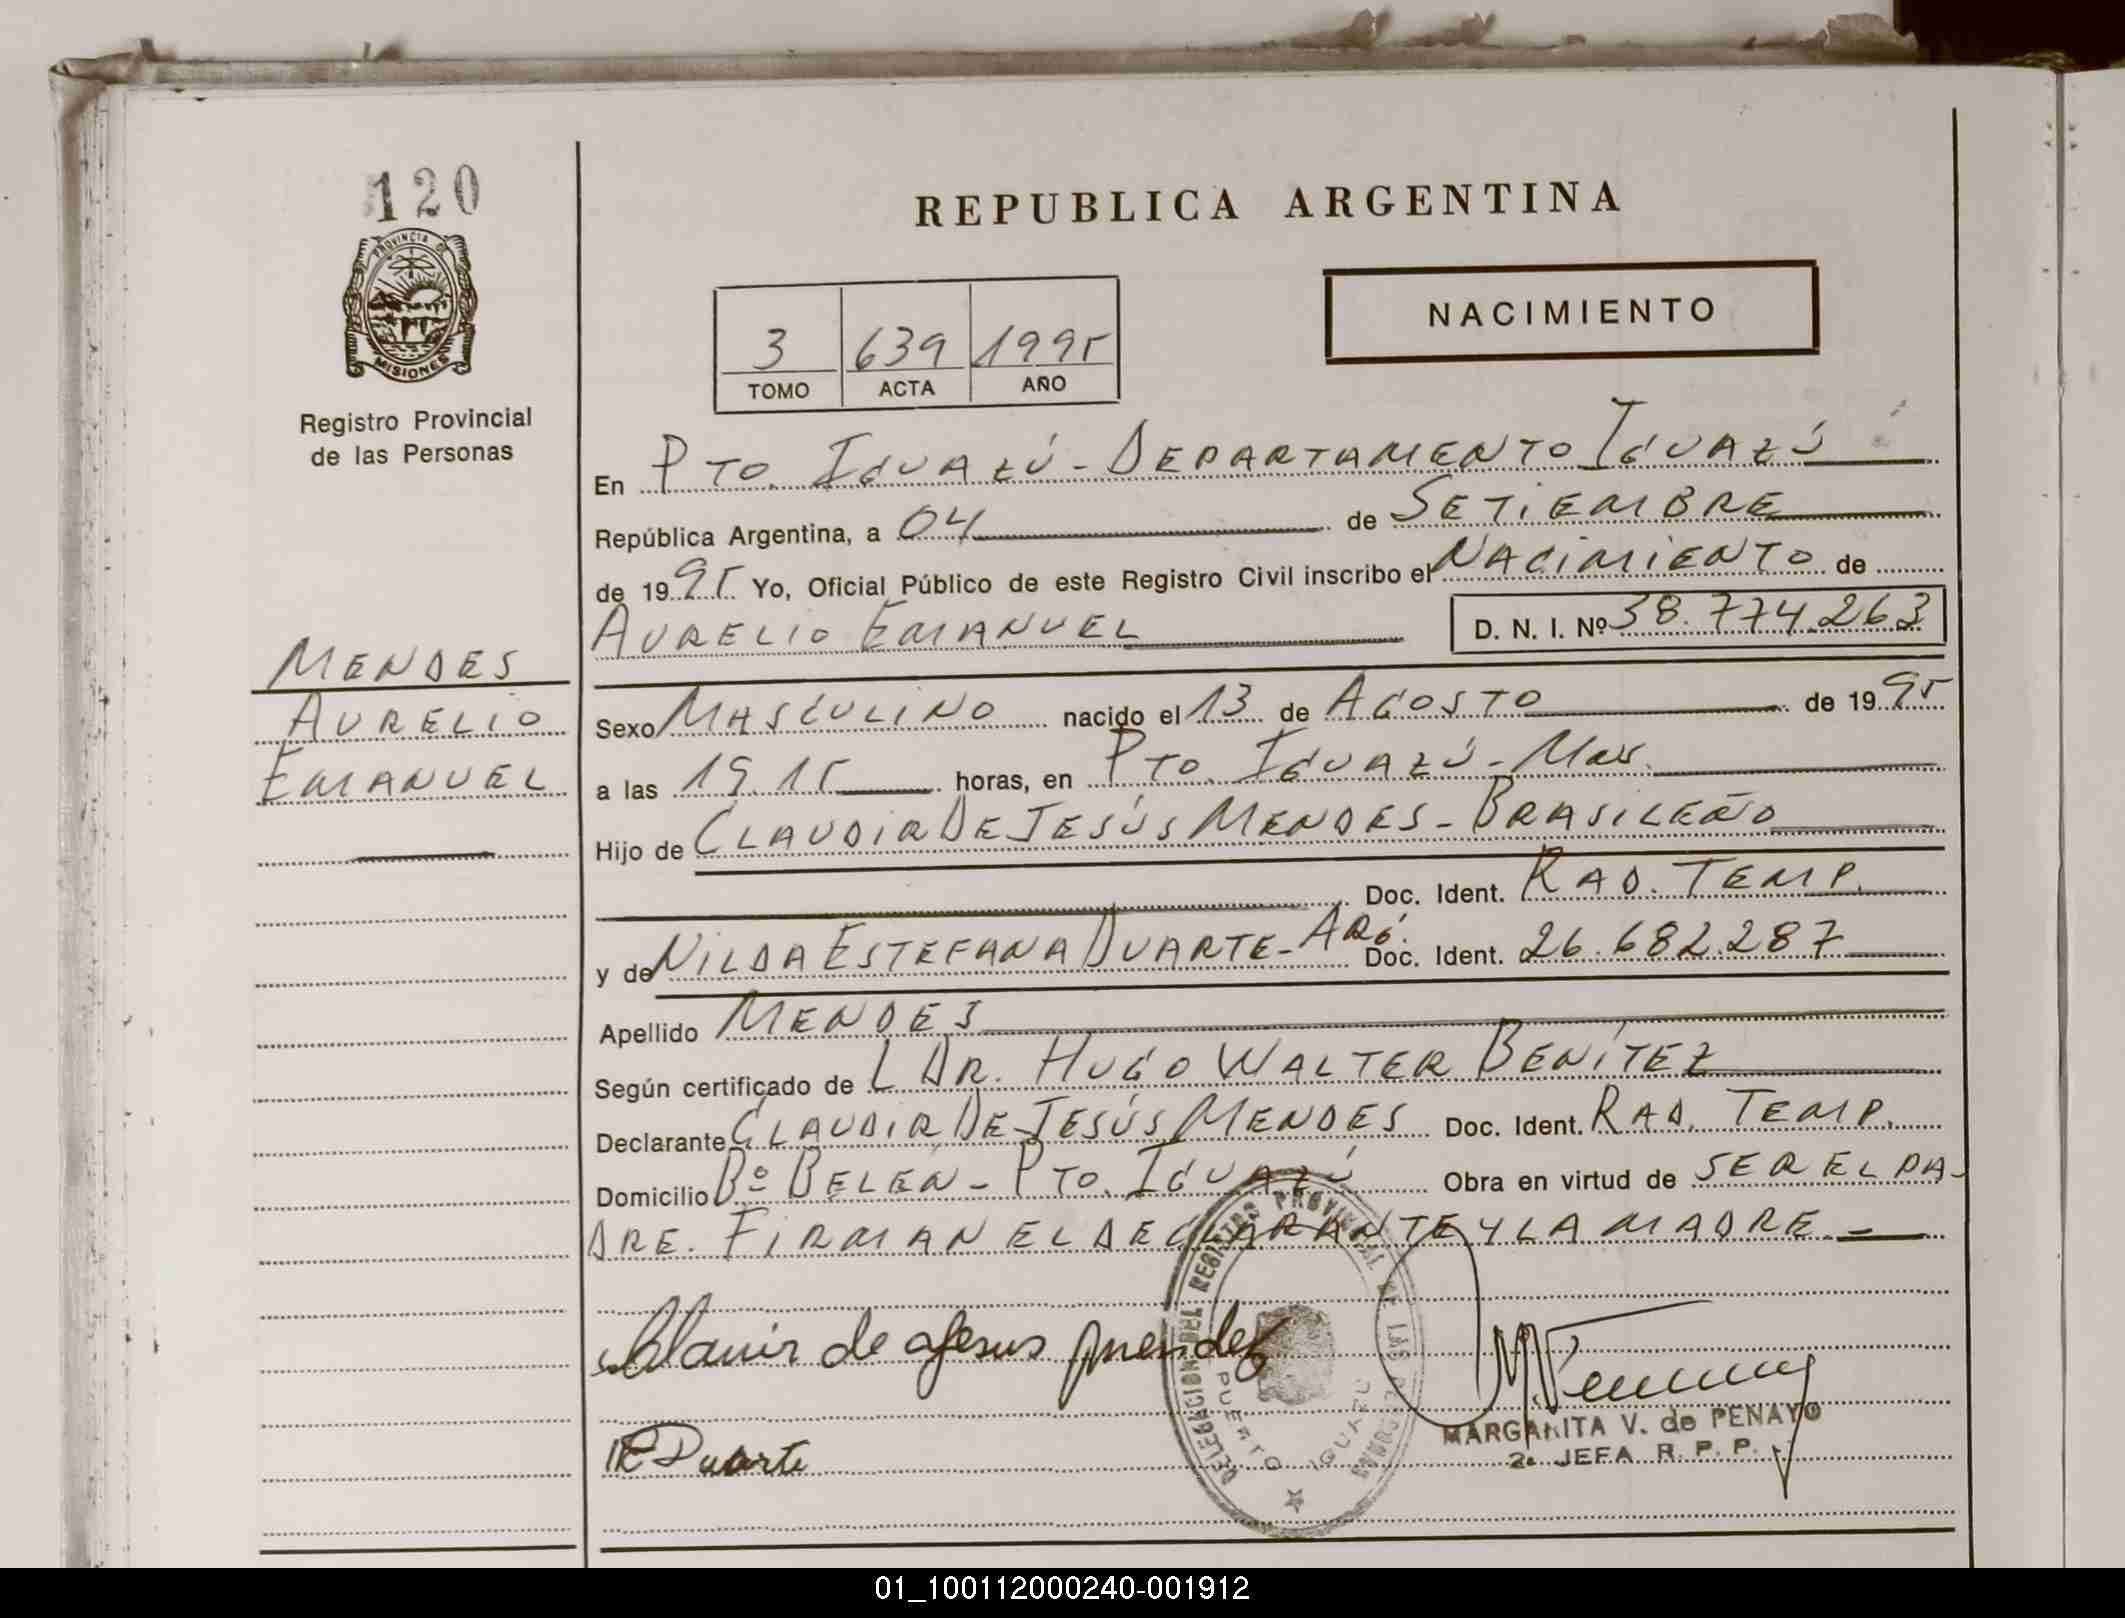 120
REPUBLICA ARGENTINA
PROVINCIA DE
MISIONES
Registro Provincial
de las Personas
3 639 1995
TOMO ACTA AÑO
NACIMIENTO
En PTO. IGUAZÚ - DEPARTAMENTO IGUAZÚ
República Argentina, a 04 de SETIEMBRE
de 1995 Yo, Oficial Público de este Registro Civil inscribo el NACIMIENTO de
AURELIO EMANUEL D. N. I. Nº 38.774.263
MENDES
AURELIO
EMANUEL
Sexo MASCULINO nacido el 13 de AGOSTO de 1995
a las 19.15 horas, en PTO. IGUAZÚ - Mnes.
Hijo de CLAUDIR DE JESÚS MENDES - BRASILEÑO
Doc. Ident. RAD. TEMP.
y de NILDA ESTEFANA DUARTE - ARG. Doc. Ident. 26.682.287
Apellido MENDES
Según certificado de L DR. HUGO WALTER BENÍTEZ
Declarante CLAUDIR DE JESÚS MENDES Doc. Ident. RAD. TEMP.
Domicilio Bº BELÉN - PTO. IGUAZÚ Obra en virtud de SER EL PA-
DRE. FIRMAN EL DECLARANTE Y LA MADRE. -
de Jesus Mendes
Duarte
DELEGACION DEL REGISTRO PROVINCIAL DE LAS PERSONAS
PUERTO IGUAZU
MARGARITA V. de PENAYO
2a. JEFA R. P. P.
01_100112000240-001912